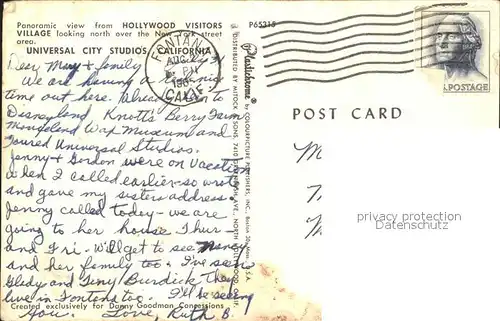 Panoramic view from HOLLYWOOD VISITORS
VILLAGE looking north over the New York street
area.
UNIVERSAL CITY STUDIOS, CALIFORNIA
P65315
Dear Mary & family,
We are having a
time out here. Already been to
Disneyland, Knotts Berry Farm
Movieland Wax Museum and
Toured Universal Studios.
Jenny & Gordon were on vacation
when I called earlier - so wrote
and gave my sisters address.
Jenny called today - we are
going to her house Thur-
and Fri. Will get to see Nancy
and her family too. I've seen
Gladys and Tiny Burdick. They
live in Fontana too. I'll be seeing
you. Love, Ruth B.
Created exclusively for Danny Goodman Concessions
Plastichrome ®
BY COLOURPICTURE PUBLISHERS, INC., BOSTON
DISTRIBUTED BY MITOCK & SONS,
FONTANA
AUG 2
PM
CALIF
U.S. POSTAGE
POST CARD
privacy protection
Datenschutz